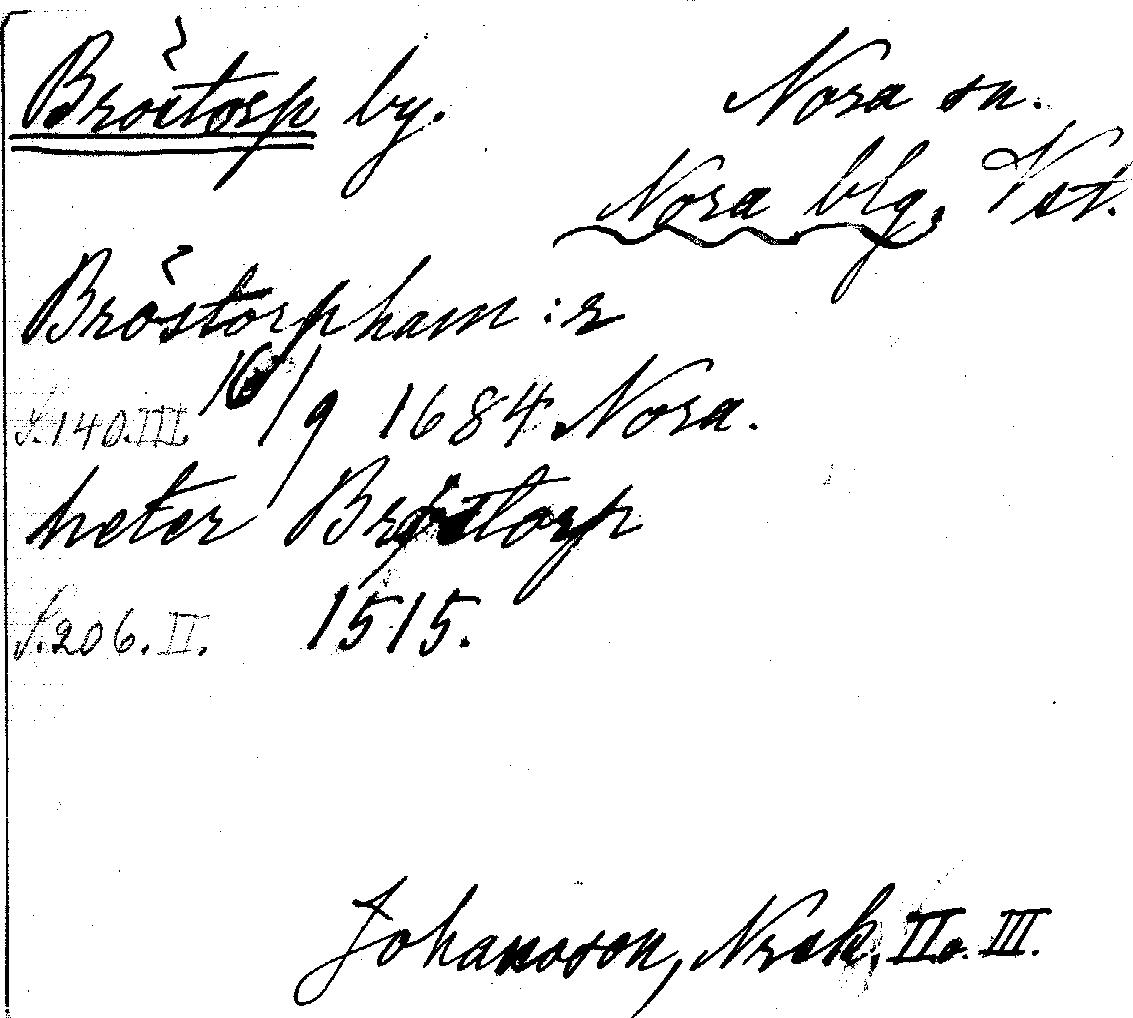 Bröstorp by.
Nora sn.
Nora blg. Vst.
Bröstorpham:r
S.140.III. 16/9 1684 Nora.
heter Bröstorp
S.206.II. 1515.
Johansson, Nrsk, II o. III.